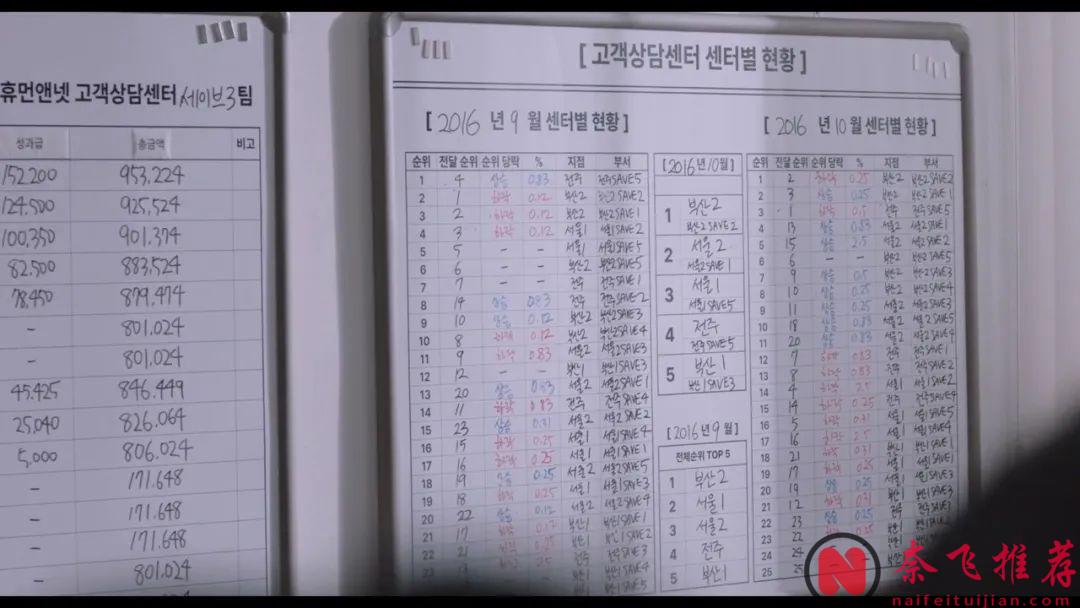 휴먼앤넷 고객상담센터 세이브3팀
성과급 총금액 비고
152,200 953,224
124,500 925,524
100,350 901,374
82,500 883,524
78,450 879,474
- 801,024
- 801,024
45,425 846,449
25,040 826,064
5,000 806,024
- 171,648
- 171,648
- 171,648
- 801,024
[고객상담센터 센터별 현황]
[2016 년 9 월 센터별 현황]
순위 전달 순위 순위 당락 % 지점 부서
1 4 상승 0.83 전주 전주SAVE5
2 1 하락 0.12 부산2 부산2SAVE2
3 2 하락 0.12 부산2 부산2SAVE1
4 3 하락 0.12 서울1 서울1SAVE2
5 5 - - 서울1 서울1SAVE5
6 6 - - 부산2 부산2SAVE5
7 7 - - 전주 전주SAVE1
8 14 상승 0.83 전주 전주SAVE2
9 10 상승 0.12 부산2 부산2SAVE3
10 8 하락 0.12 부산2 부산2SAVE4
11 9 하락 0.83 서울2 서울2SAVE3
12 12 - - 부산1 부산1SAVE3
13 20 상승 0.83 서울2 서울2SAVE1
14 11 하락 0.83 전주 전주SAVE4
15 23 상승 서울2 서울2SAVE2
16 15 하락 0.25 서울1 서울1SAVE4
17 16 하락 0.25 서울1 서울1SAVE1
18 19 상승 0.25 서울2 서울2SAVE5
19 18 하락 0.25 서울1 서울1SAVE3
20 22 상승 0.12 서울2 서울2SAVE4
21 17 하락 부산1 부산1SAVE1
22 21 하락 0.25 부산1 부산1SAVE2
전주 전주SAVE3
[2016년10월]
1 부산2
부산2 SAVE2
2 서울2
서울2SAVE1
3 서울1
서울1SAVE5
4 전주
전주SAVE5
5 부산1
부산1SAVE3
[2016년9월]
전체순위 TOP 5
1 부산2
2 서울1
3 서울2
4 전주
5 부산1
[2016 년 10 월 센터별 현황]
순위 전달 순위 순위 당락 % 지점 부서
1 2 하락 0.25 부산2 부산2SAVE2
2 3 상승 0.25 부산2 부산2SAVE1
3 1 하락 0.5 전주 전주SAVE5
4 13 상승 0.83 서울2 서울2SAVE1
5 15 상승 2.5 서울2 서울2SAVE2
6 6 - - 부산2 부산2SAVE5
7 9 상승 0.5 부산2 부산2SAVE3
8 10 상승 0.25 부산2 부산2SAVE4
9 11 상승 0.25 서울2 서울2SAVE3
10 18 상승 0.83 서울2 서울2SAVE5
11 20 상승 0.83 서울2 서울2SAVE4
12 7 하락 0.83 전주 전주SAVE1
13 8 하락 0.83 전주 전주SAVE2
14 4 하락 2.5 서울1 서울1SAVE2
15 14 하락 0.25 전주 전주SAVE4
16 5 하락 서울1 서울1SAVE5
17 16 하락 2.5 서울1 서울1SAVE4
18 21 상승 부산1 부산1SAVE1
19 17 하락 0.25 서울1
20 19 상승 0.25 서울1 서울1SAVE3
21 12 하락 부산1 부산1SAVE3
22 23 상승 0.25 전주 전주SAVE1
23 22 부산1
24 24
25 25
N 奈飞推荐
naifeituijian.com